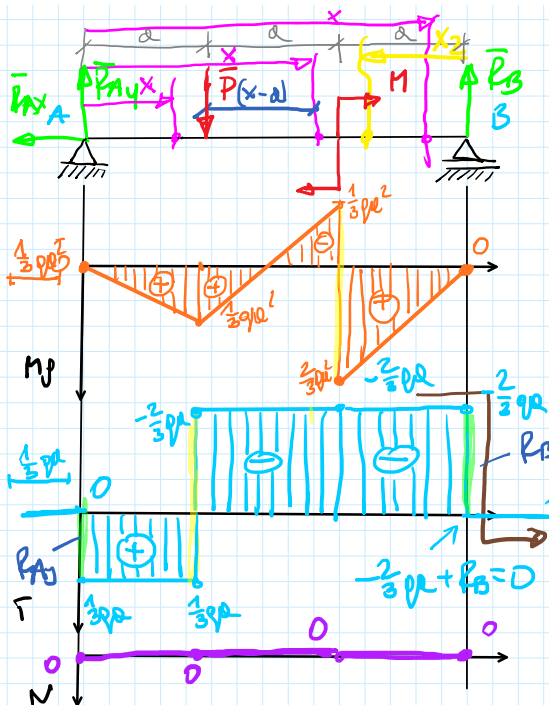 x
a a a
x x₂
R̅Ax A R̅Ay x P̅ (x-a) M R̅B
B
⅓qa²
⊖ 0
⅓qa²
⊕ ⊕ ⊕
⅓qa²
Mg ⅔qa² -⅔qa
-⅔qa ⅔qa
⅓qa 0 ⊖ ⊖ RB
RAy ⊕
-⅔qa + RB = 0
T ⅓qa ⅓qa
0 0
0 0
N